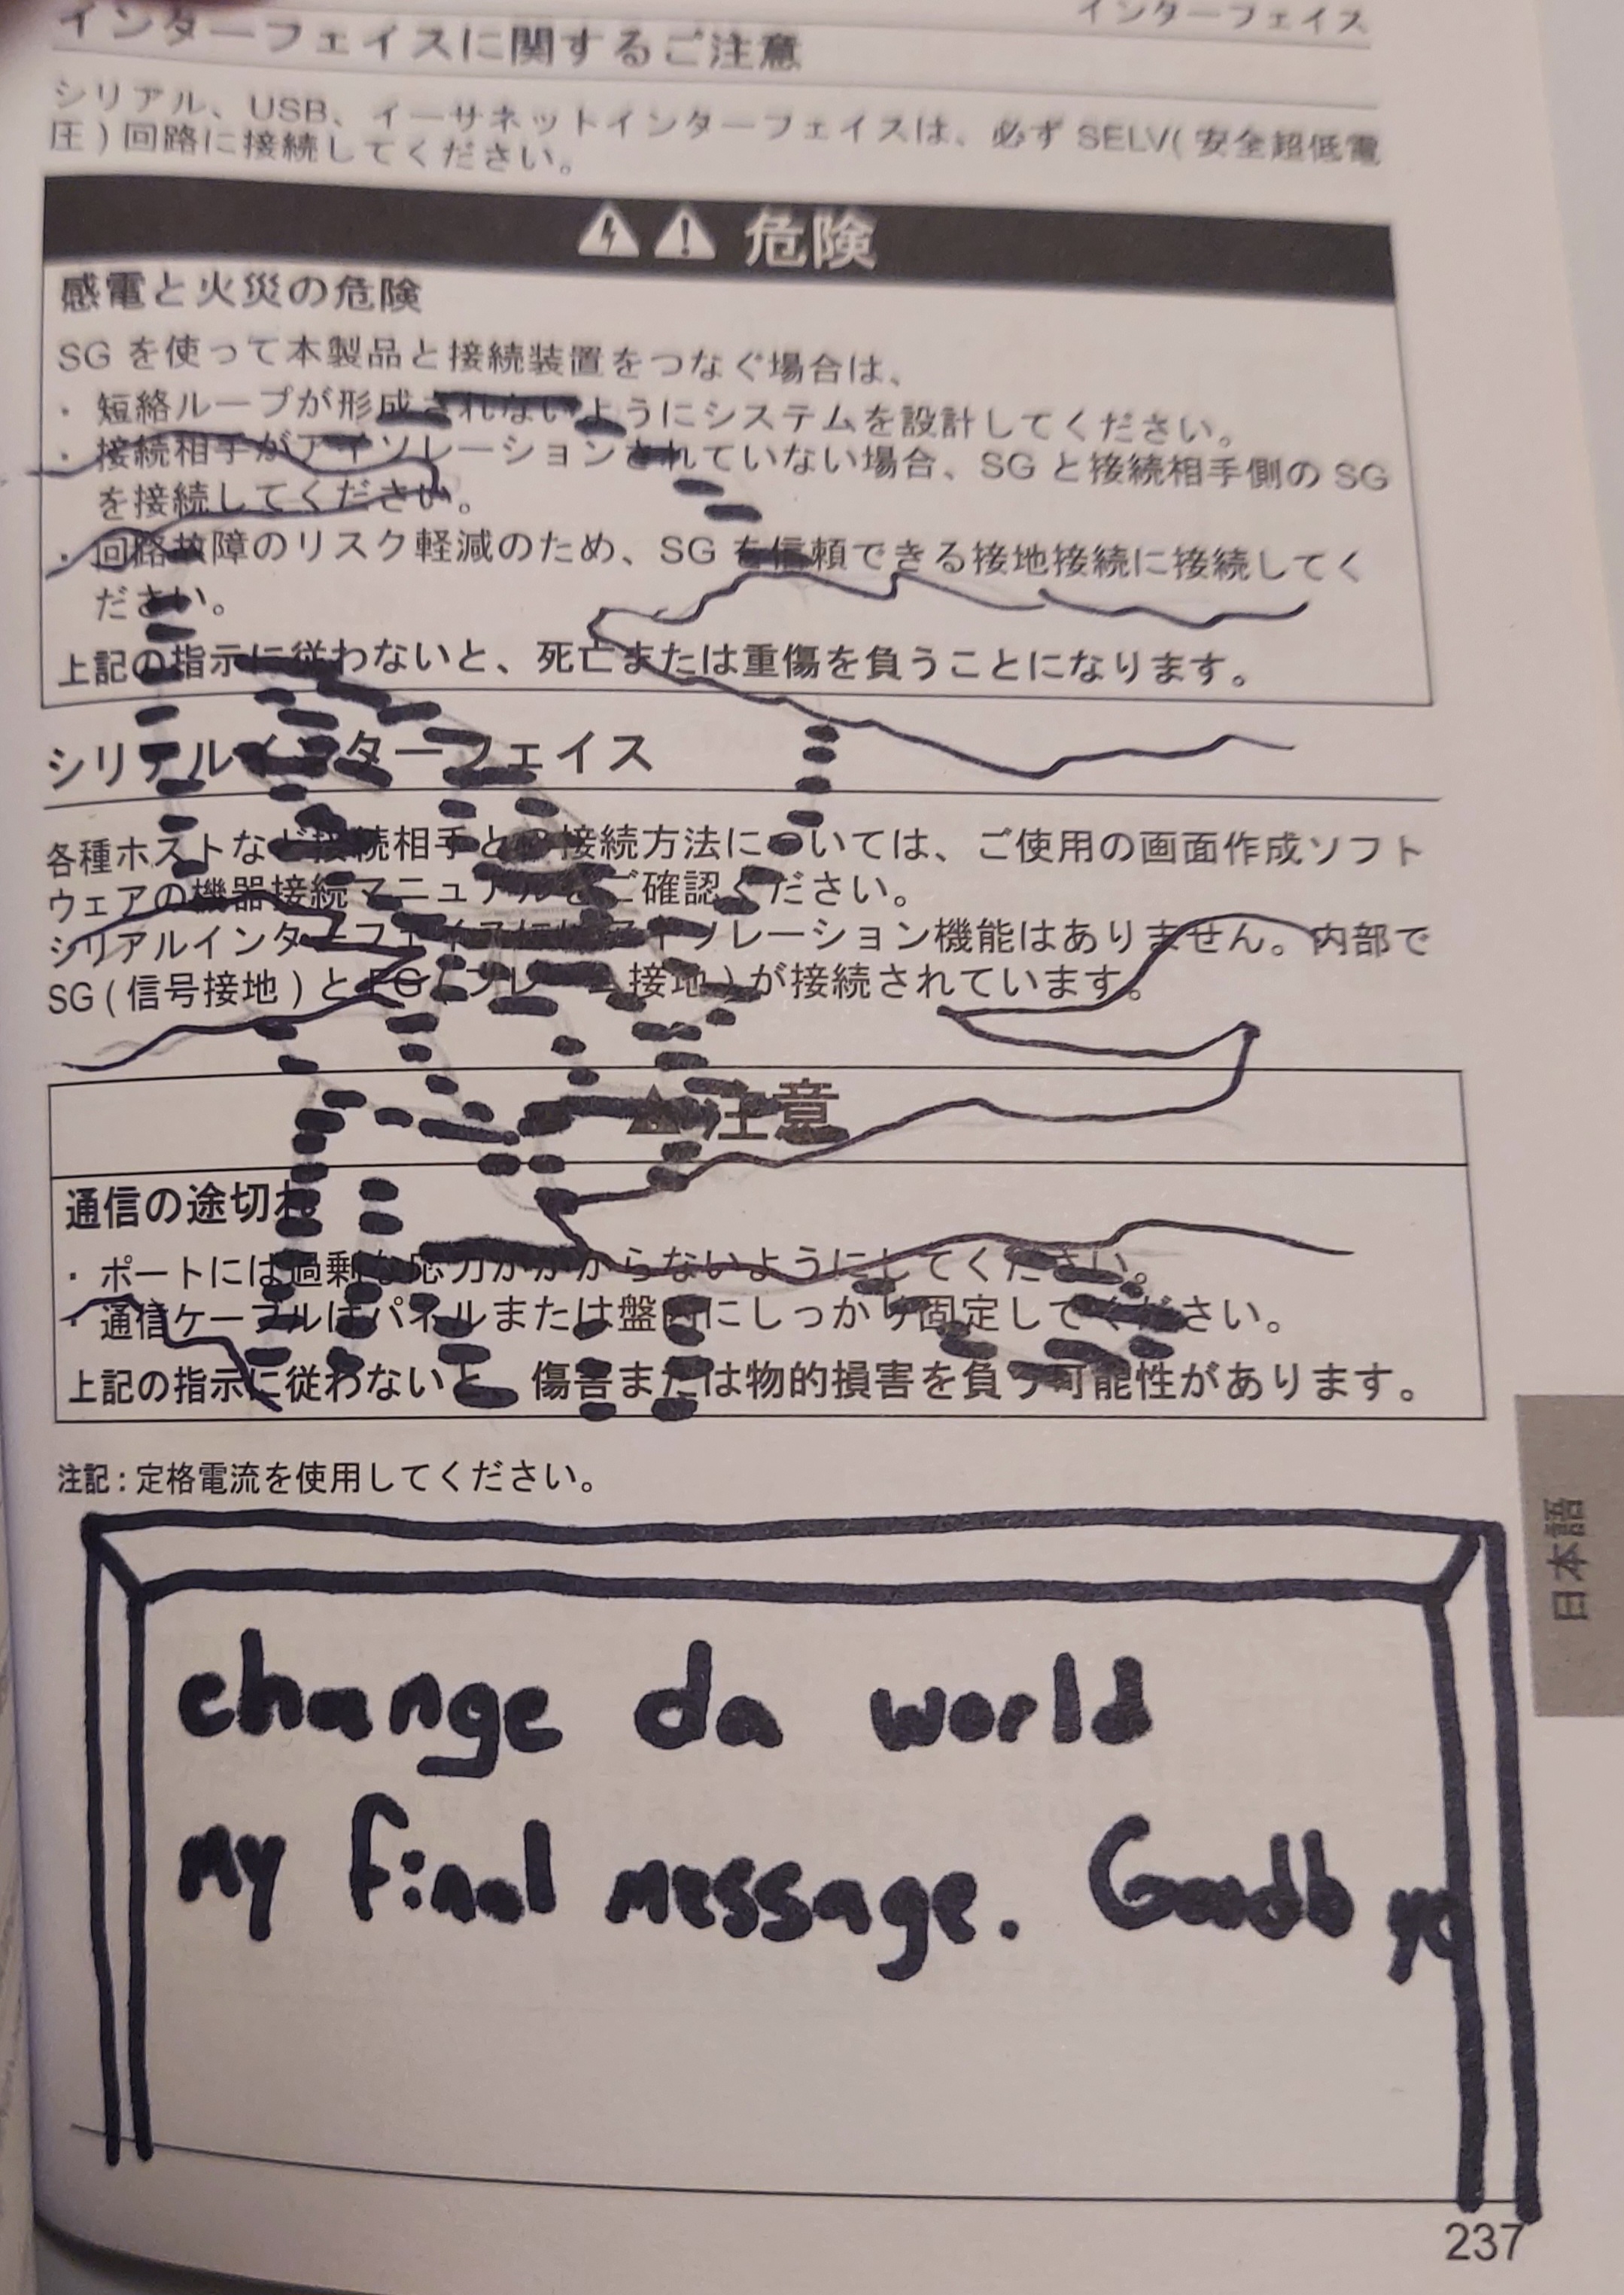 インターフェイス
インターフェイスに関するご注意
シリアル、USB、イーサネットインターフェイスは、必ず SELV( 安全超低電
圧 ) 回路に接続してください。
危険
感電と火災の危険
SG を使って本製品と接続装置をつなぐ場合は、
・ 短絡ループが形成されないようにシステムを設計してください。
・ 接続相手がアイソレーションされていない場合、SG と接続相手側の SG
を接続してください。
・ 回路故障のリスク軽減のため、SG を信頼できる接地接続に接続してく
ださい。
上記の指示に従わないと、死亡または重傷を負うことになります。
シリアルインターフェイス
各種ホストなど接続相手との接続方法については、ご使用の画面作成ソフト
ウェアの機器接続マニュアルをご確認ください。
シリアルインターフェイスにはアイソレーション機能はありません。内部で
SG ( 信号接地 ) と FG ( フレーム接地 ) が接続されています。
注意
通信の途切れ
・ ポートには過剰な応力がかからないようにしてください。
・ 通信ケーブルはパネルまたは盤にしっかり固定してください。
上記の指示に従わないと、傷害または物的損害を負う可能性があります。
注記 : 定格電流を使用してください。
日本語
change da world
my final message. Goodb ye
237